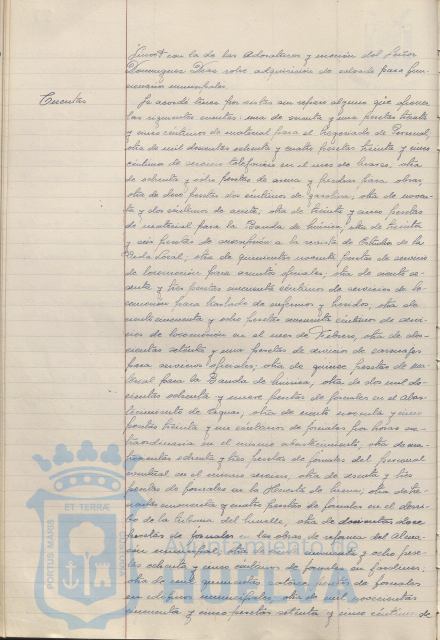 con la de los Adoratrices y moción del Señor
Dominguez Deza sobre adquisición de calzado para fun-
cionarios municipales.
Cuentas
Se acordó tener por vistas sin reparo alguno que ofrecer
las siguientes cuentas: una de treinta y una pesetas treinta
y cinco céntimos de material para el Negociado de Personal,
otra de mil doscientas ochenta y cuatro pesetas treinta y cinco
céntimos de servicio telefónico en el mes de Marzo, otra
de ochenta y ocho pesetas de arena y piedras para obras,
otra de doce pesetas dos céntimos de gasolina, otra de noven-
ta y dos céntimos de aceite, otra de treinta y cinco pesetas
de material para la Banda de Música, otra de treinta
y seis pesetas de suscripción a la revista de Estudios de la
Vida Local; otra de quinientas noventa pesetas de servicio
de locomoción para asuntos oficiales; otra de ciento
y tres pesetas cincuenta céntimos de servicios de lo-
comoción para traslado de enfermos y heridos, otra de
cincuenta y ocho pesetas sesenta céntimos de servi-
cios de locomoción en el mes de Febrero, otra de dos-
cientas setenta y una pesetas de servicio de carruajes
para servicios oficiales; otra de quince pesetas de ma-
terial para la Banda de música, otra de dos mil dos-
cientas ochenta y nueve pesetas de jornales en el Abas-
tecimiento de Aguas, otra de ciento noventa y cinco
pesetas treinta y un céntimos de jornales por horas ex-
traordinarias en el mismo abastecimiento, otra de
ochenta y tres pesetas de jornales del personal
eventual en el mismo servicio, otra de sesenta y tres
pesetas de jornales en la otra de tres-
cientas cincuenta y cuatro pesetas de jornales en el derri-
bo de la Tribuna del Muelle, otra de doscientas doce
pesetas de jornales en las obras de reforma del Alma-
cén municipal, otra de cincuenta y ocho pese-
tas ochenta y cinco céntimos de jornales en jardines;
otra de mil quinientas catorce pesetas de jornales
en edificios municipales, otra de mil novecientas
cincuenta y cinco pesetas setenta y cinco céntimos de
PORTUS MARIS ET TERRAE CUSTODIA
Ayuntamiento de
HUELVA